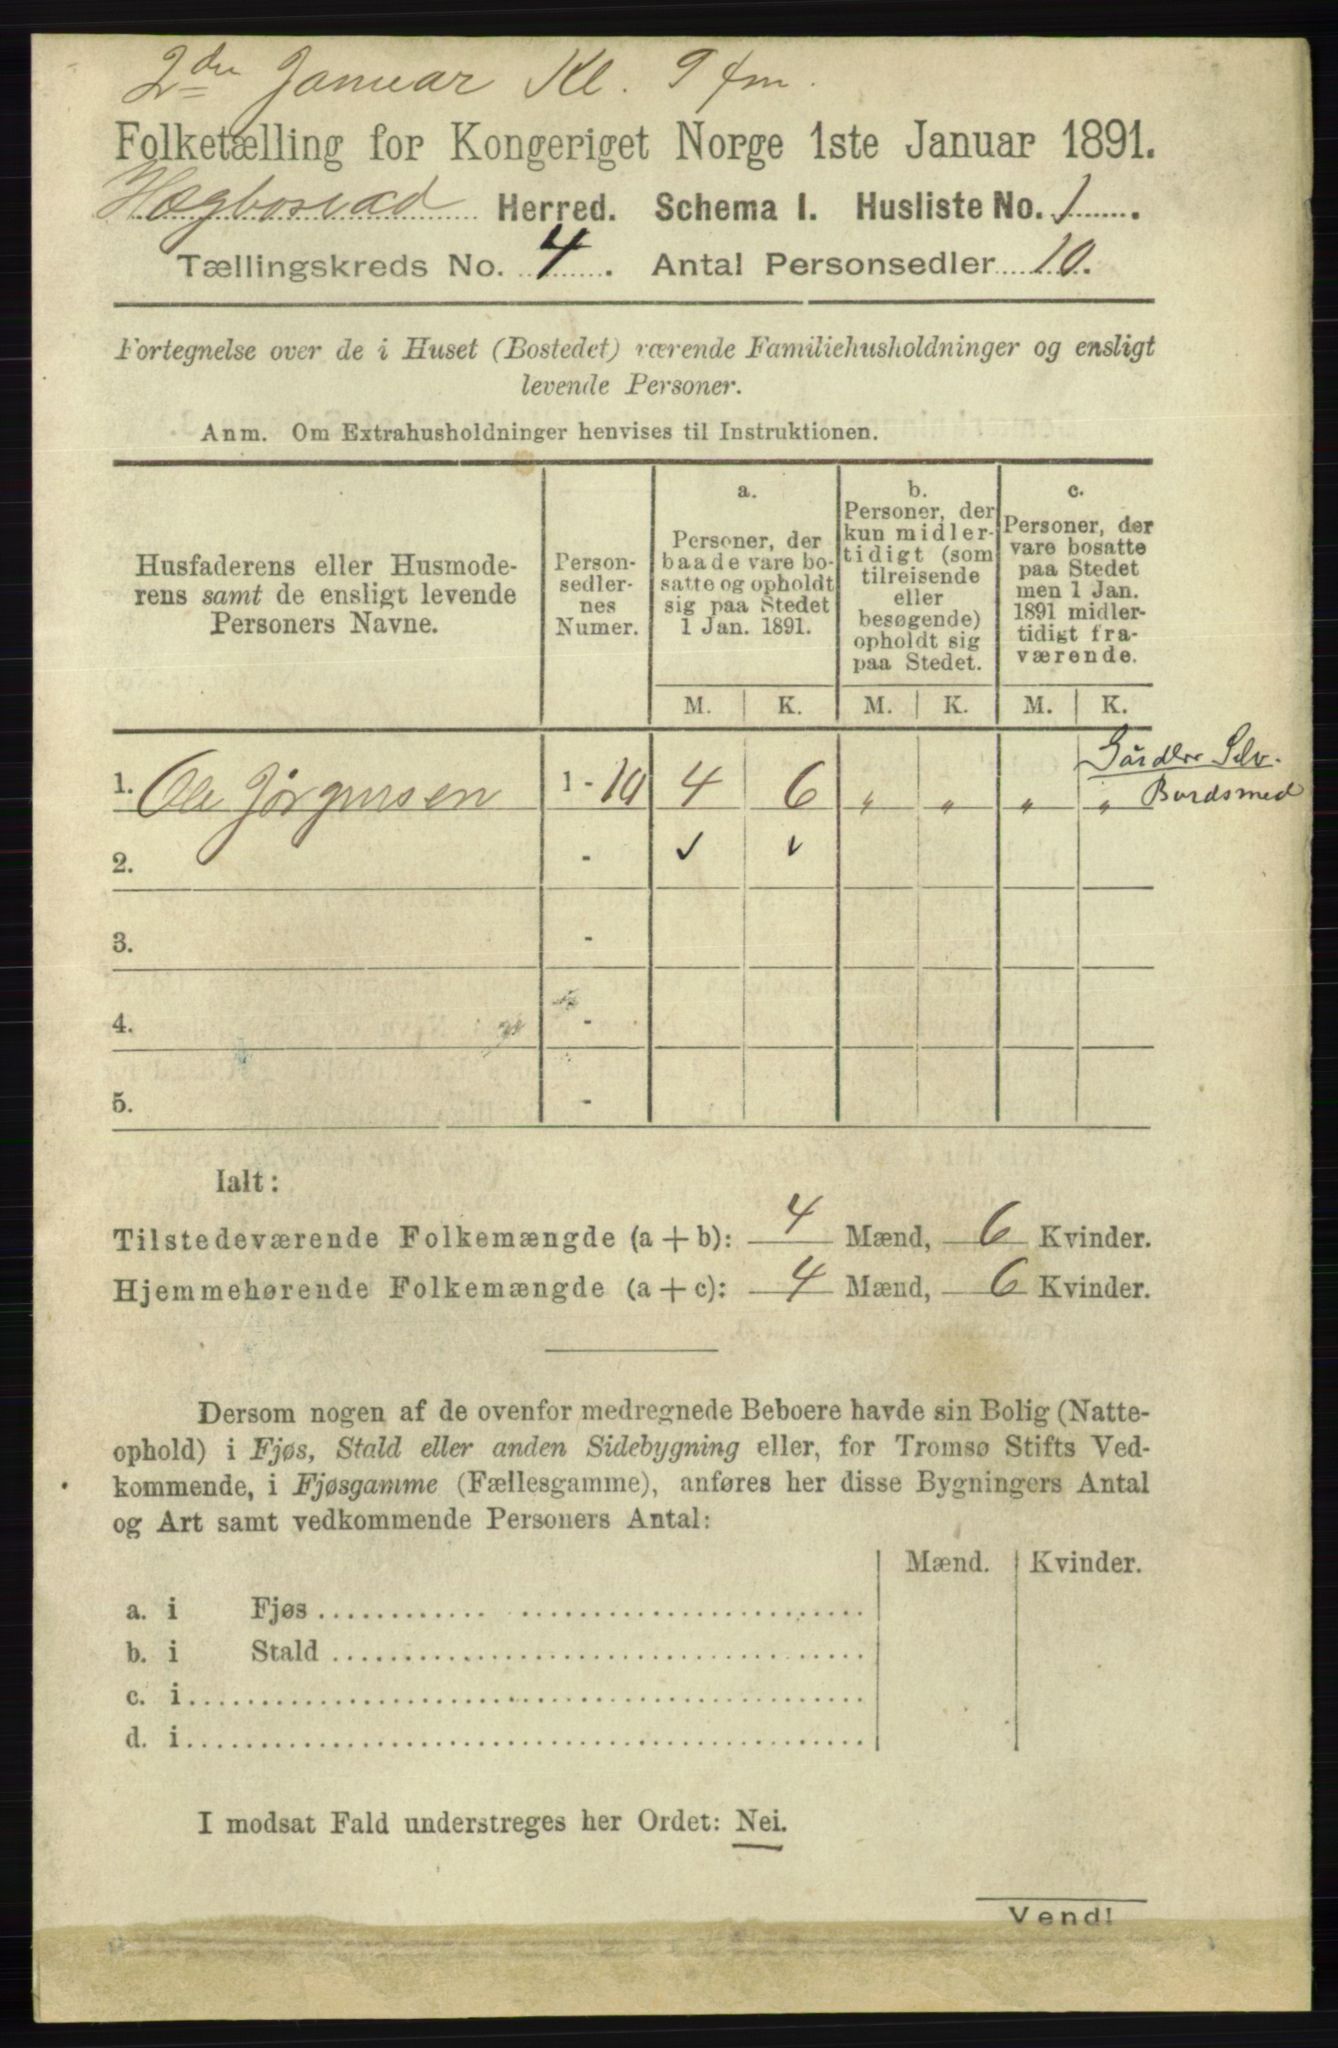 2den Januar Kl. 9 fm.
Folketælling for Kongeriget Norge 1ste Januar 1891.
Hægbostad Herred. Schema I. Husliste No. 1.
Tællingskreds No. 4. Antal Personsedler 10.
Fortegnelse over de i Huset (Bostedet) værende Familiehusholdninger og ensligt
levende Personer.
Anm. Om Extrahusholdninger henvises til Instruktionen.
Husfaderens eller Husmode-
rens samt de ensligt levende
Personers Navne.
Person-
sedler-
nes
Numer.
a.
Personer, der
baade vare bo-
satte og opholdt
sig paa Stedet
1 Jan. 1891.
b.
Personer, der
kun midler-
tidigt (som
tilreisende
eller
besøgende)
opholdt sig
paa Stedet.
c.
Personer, der
vare bosatte
paa Stedet
men 1 Jan.
1891 midler-
tidigt fra-
værende.
M. K. M. K. M. K.
1. Ole Jörgensen 1 - 10 4 6 „ „ „ „
Gårdbr Selv.
2. - ✓ ✓
3. -
4. -
5. -
Ialt:
Tilstedeværende Folkemængde (a + b): 4 Mænd, 6 Kvinder.
Hjemmehørende Folkemængde (a + c): 4 Mænd, 6 Kvinder.
Dersom nogen af de ovenfor medregnede Beboere havde sin Bolig (Natte-
ophold) i Fjøs, Stald eller anden Sidebygning eller, for Tromsø Stifts Ved-
kommende, i Fjøsgamme (Fællesgamme), anføres her disse Bygningers Antal
og Art samt vedkommende Personers Antal:
Mænd. Kvinder.
a. i Fjøs
b. i Stald
c. i
d. i
I modsat Fald understreges her Ordet: Nei.
Vend!